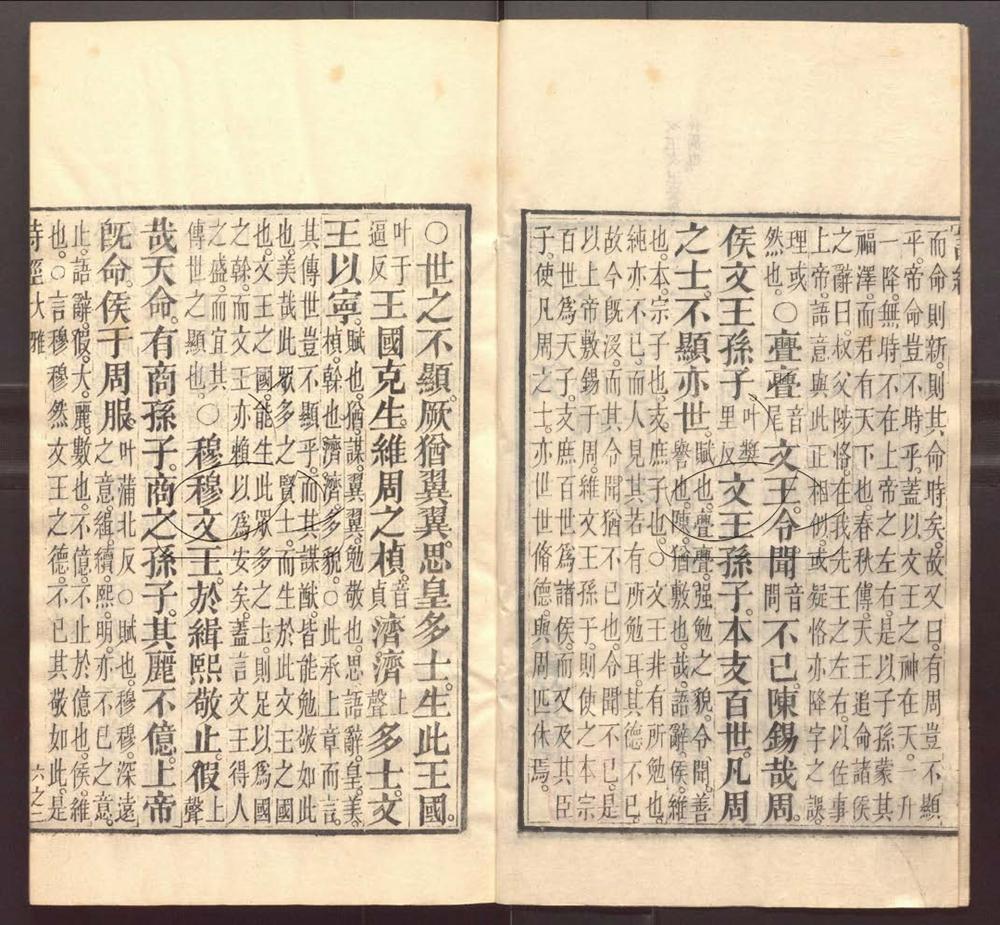 而命則新。則其命時矣。故又曰。有周豈不顯
乎。帝命豈不時乎。蓋以文王之神在天。一升
一降。無時不在上帝之左右。是以子孫蒙其
福澤。而君有天下也。春秋傳。天王追命諸侯
之辭曰。叔父陟恪在我先王之左右。以佐事
上帝。語意與此正相似。或疑恪亦降字之誤
理或然也。〇亹亹音尾文王。令聞音問不已。陳錫哉周。
侯文王孫子叶奬里反文王孫子。本支百世。凡周
之士。不顯亦世。賦也。亹亹。强勉之貌。令聞。善譽也。陳。猶敷也。哉。語辭。侯。維
也。本。宗子也。支。庶子也。〇文王非有所勉也
純亦不已。而人見其若有所勉耳。其德不已
故今旣沒。而其令聞猶不已也。令聞不已。是
以上帝敷錫于周。維文王孫子。則使之本宗
百世爲天子。支庶百世爲諸侯。而又及其臣
子。使凡周之士。亦世世脩德。與周匹休焉。
〇世之不顯。厥猶翼翼。思皇多士。生此王國。
叶于逼反王國克生。維周之楨音貞濟濟上聲多士。文
王以寧。賦也。猶。謀。翼翼。勉敬也。思。語辭。皇。美。楨。榦也。濟濟。多貌。〇此承上章而言。
其傳世豈不顯乎。而其謀猷皆能勉敬如此
也。美哉此衆多之賢士。而生於此文王之國
也。文王之國。能生此眾多之士。則足以爲國
之榦。而文王亦賴以爲安矣。蓋言文王得人
之盛。而宜其傳世之顯也。〇穆穆文王。於緝熙敬止。假上聲
哉天命。有商孫子。商之孫子。其麗不億。上帝
旣命。侯于周服。叶蒲北反〇賦也。穆穆。深遠之意。緝。續。熙。明。亦不已之意。
止。語辭。假。大。麗。數也。不億。不止於億也。侯。維
也。〇言穆穆然文王之德。不已其敬如此。是
詩經大雅 六之二